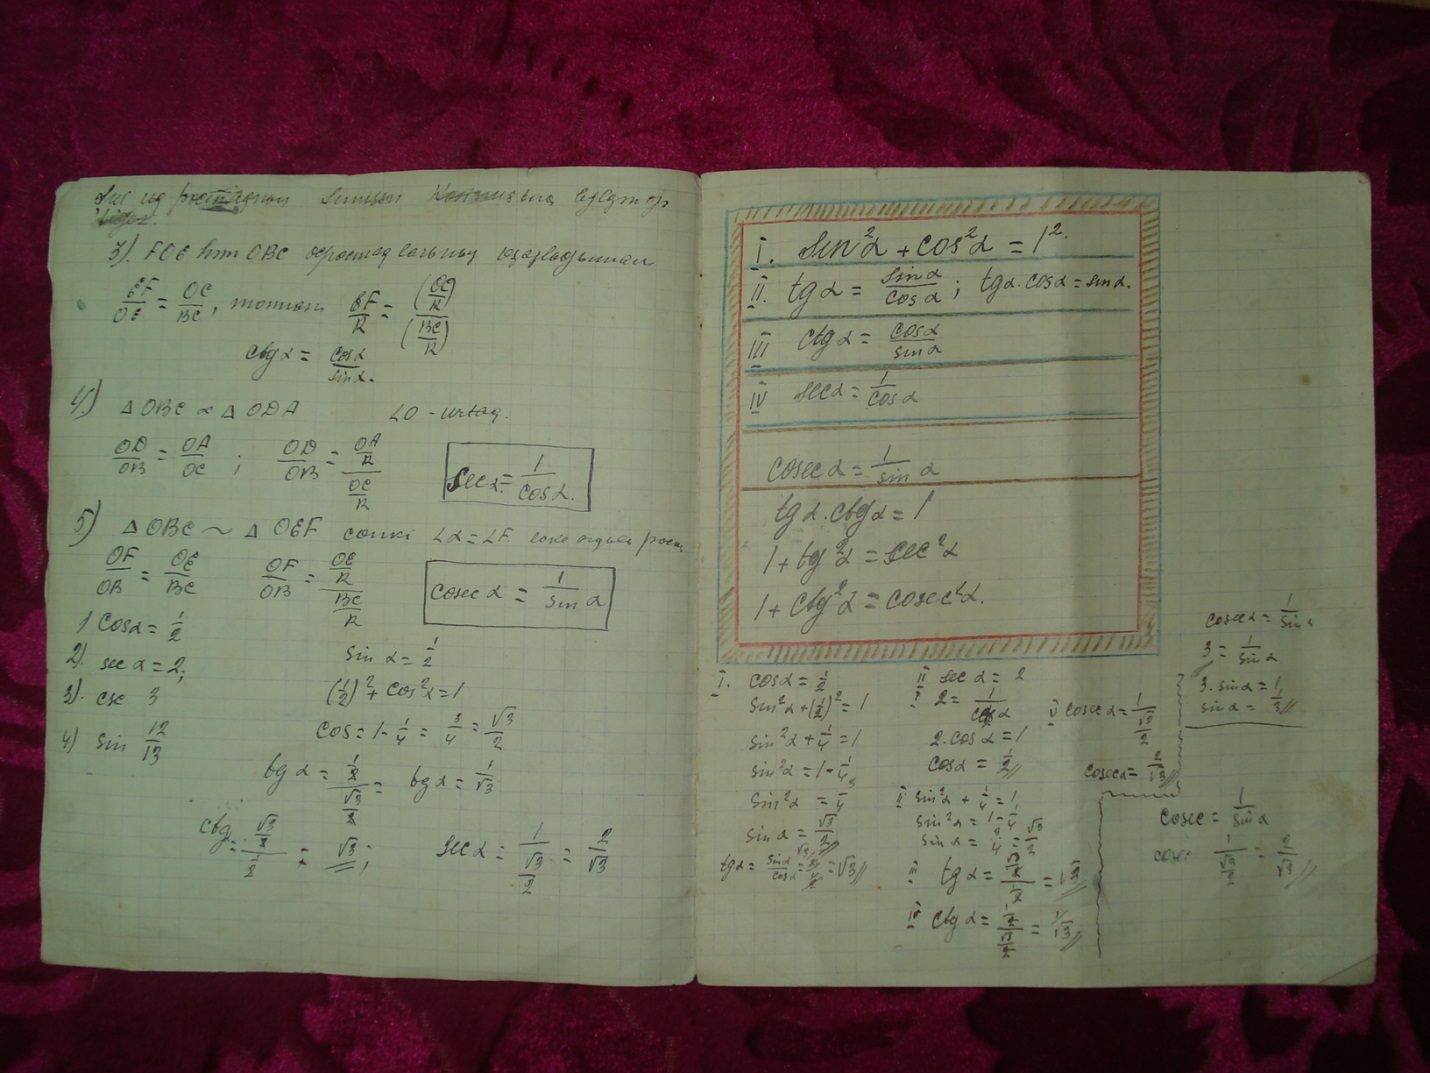 3). FOE
EF/OE = OC/BC, EF/R = (OC/R)/(BC/R)
ctgα = cosα/sinα.
4) ΔOBC ∾ ΔODA ∠O - urtaq.
OD/OB = OA/OC ; OD/OB = (OA/R)/(OC/R)
secα = 1/cosα.
5) ΔOBC ~ ΔOEF ∠α = ∠F.
OF/OB = OE/BC OF/OB = (OE/R)/(BC/R)
cosecα = 1/sinα
1 Cosα = 1/2
2). secα = 2;
3). csc 3
4) sin 12/13
sinα = 1/2
(1/2)² + cos²α = 1
cos = 1 - 1/4 = 3/4 = √3/2
tgα = (1/2)/(√3/2) = tgα = 1/√3
ctg = (√3/2)/(1/2) = √3;
secα = 1/(√3/2) = 2/√3
I. sin²α + cos²α = 1².
II. tgα = sinα/cosα ; tgα·cosα = sinα.
III ctgα = cosα/sinα
IV secα = 1/cosα
cosecα = 1/sinα
tgα·ctgα = 1
1 + tg²α = sec²α
1 + ctg²α = cosec²α.
I. cosα = 1/2
sin²α + (1/2)² = 1
sin²α + 1/4 = 1
sin²α = 1 - 1/4
sin²α = 3/4
sinα = √3/2
tgα = sinα/cosα = = √3
II secα = 2
I 2 = 1/cosα
2·cosα = 1
cosα = 1/2
II sin²α + 1/4 = 1
sin²α = 1 - 1/4
sinα = 3/4 = √3/2
III tgα = (√3/2)/(1/2) = √3
IV ctgα = (1/2)/(√3/2) = 1/√3
V cosecα = 1/(√3/2)
cosecα = 2/√3
cosecα = 1/sinα
3 = 1/sinα
3·sinα = 1,
sinα = 1/3
cosec = 1/sinα
cosec 1/(√3/2) = 2/√3